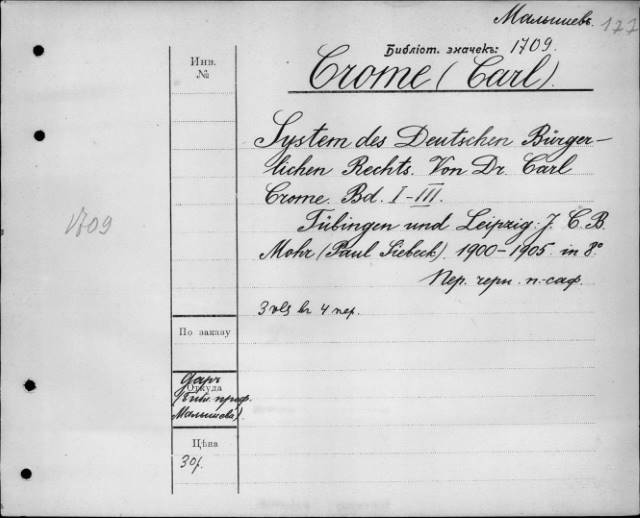 Малышевъ. 177
Библіот. значекъ: 1709.
Crome (Carl).
Инв.
№
System des Deutschen Bürger-
lichen Rechts. Von Dr. Carl
Crome. Bd. I-III.
Tübingen und Leipzig: J. C. B.
Mohr (Paul Siebeck). 1900-1905. in 8.º
Пер. черн. п.-саф.
1709
3 vls въ 4 пер.
По заказу
Даръ
Откуда
(Библ. проф.
Малышева).
Цѣна
30 р.